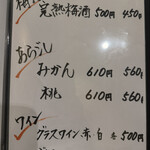 完熟梅酒 500円 450
あらごし
みかん 610円 560
桃 610円 560
ワイン
グラスワイン 赤・白 各 500円